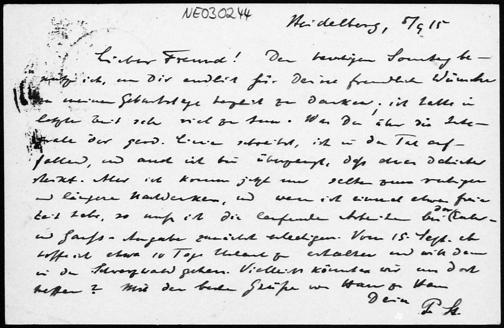 NE030244
Heidelberg, 5/9 15
Lieber Freund! Den heutigen Sonntag be-
ich, um Dir endlich für Deine freundlichen Wünsche
zu meinem Geburtstage herzlich zu danken; ich hatte in
letzter Zeit sehr viel zu tun. Was Du über die Inter-
valle der Linie schreibst, ist in der Tat auf-
fallend, und auch ich bin überzeugt, daß etwas dahinter
steckt. Aber ich komme jetzt nur selten zum ruhigen
und längeren Nachdenken, und wenn ich einmal etwas freie
Zeit habe, so muß ich die laufenden Arbeiten bei der Euler-
und Gauß-Ausgabe zunächst erledigen. Vom 15. Sept. ab
hoffe ich etwa 10 Tage Urlaub zu erhalten und will dann
in den Schwarzwald gehen. Vielleicht könnten wir uns dort
treffen? Mit den besten Grüßen von Haus zu Haus
Dein P. St.